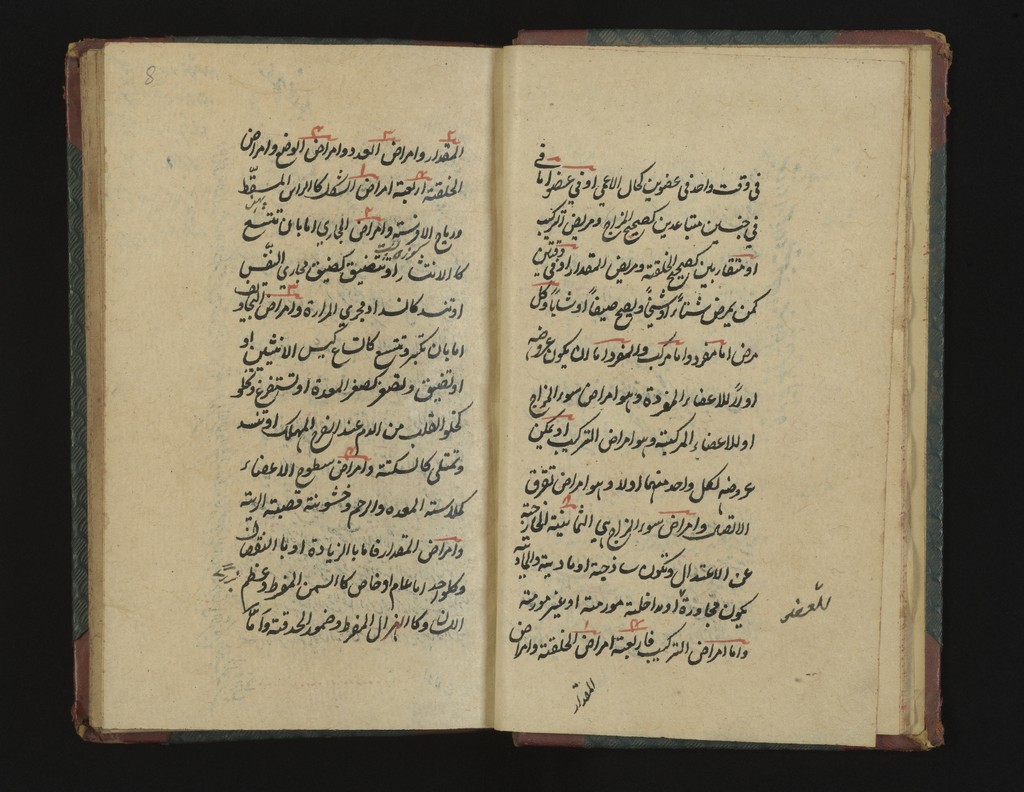 في وقت واحد في عضوين كحال الاعمي او في عضو اما في
في جنسين متباعدين كصحيح المزاج ومريض التركيب
او متقاربين كصحيح الخلقة ومريض المقدار او في وقتين
كمن يمرض شتاءً او شيخاً ويصح صيفاً او شاباً وكل
مرض اما مفرد واما مركب والمفرد اما ان يكون عروضه
اولاً للاعضاء المفردة وهو امراض سوء المزاج
او للاعضاء المركبة وهو امراض التركيب او يمكن
عروضه لكل واحد منهما اولا وهو امراض تفرق
الاتصال وامراض سوء المزاج هي الثمانية الخارجة
عن الاعتدال وتكون ساذجة او مادية والمادية
يكون مجاورة او مداخلة مورمة او غير مورمة
واما امراض التركيب فاربعة امراض الخلقة وامراض
المقدار
8
المقدار وامراض العدد وامراض الوضع وامراض
الخلقة اربعة امراض الشكل كالراس المسقط
وامراض المجاري اما بان تتسع
كالانتشار او تضيق كضيق مجاري النفس
او تنسد كانسداد مجري المرارة وامراض التجاويف
اما بان تكبر وتتسع كاتساع كيس الانثيين او
او تضيق وتصغر كصغر المعدة او تستفرغ وتخلو
كخلو القلب من الدم عند الفرح المهلك او تنسد
وتمتلي كالسكتة وامراض سطوح الاعضاء
كملاسة المعده والرحم وخشونة قصبة الرية
وامراض المقدار فاما بالزيادة او بالنقصان
وكل واحد اما عام او خاص كالسمن المفرط وعظم
اللسان وكالهزال المفرط وضمور الحدقة واما